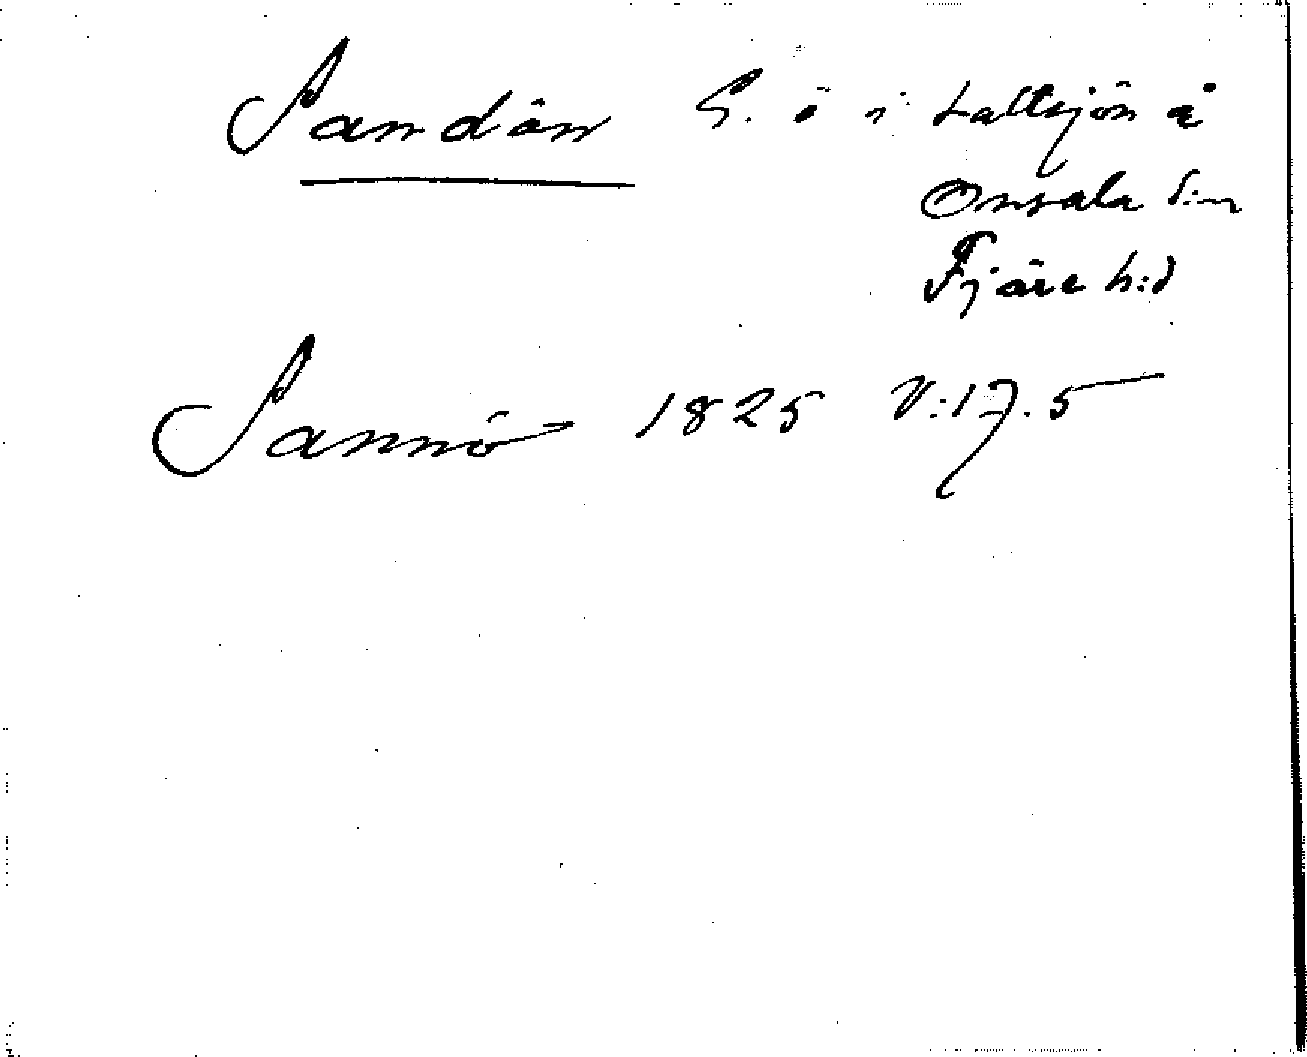 Sandön G. ö i saltsjön å
Onsala s:n
Fjäre h:d
Sannö 1825 V:17.5